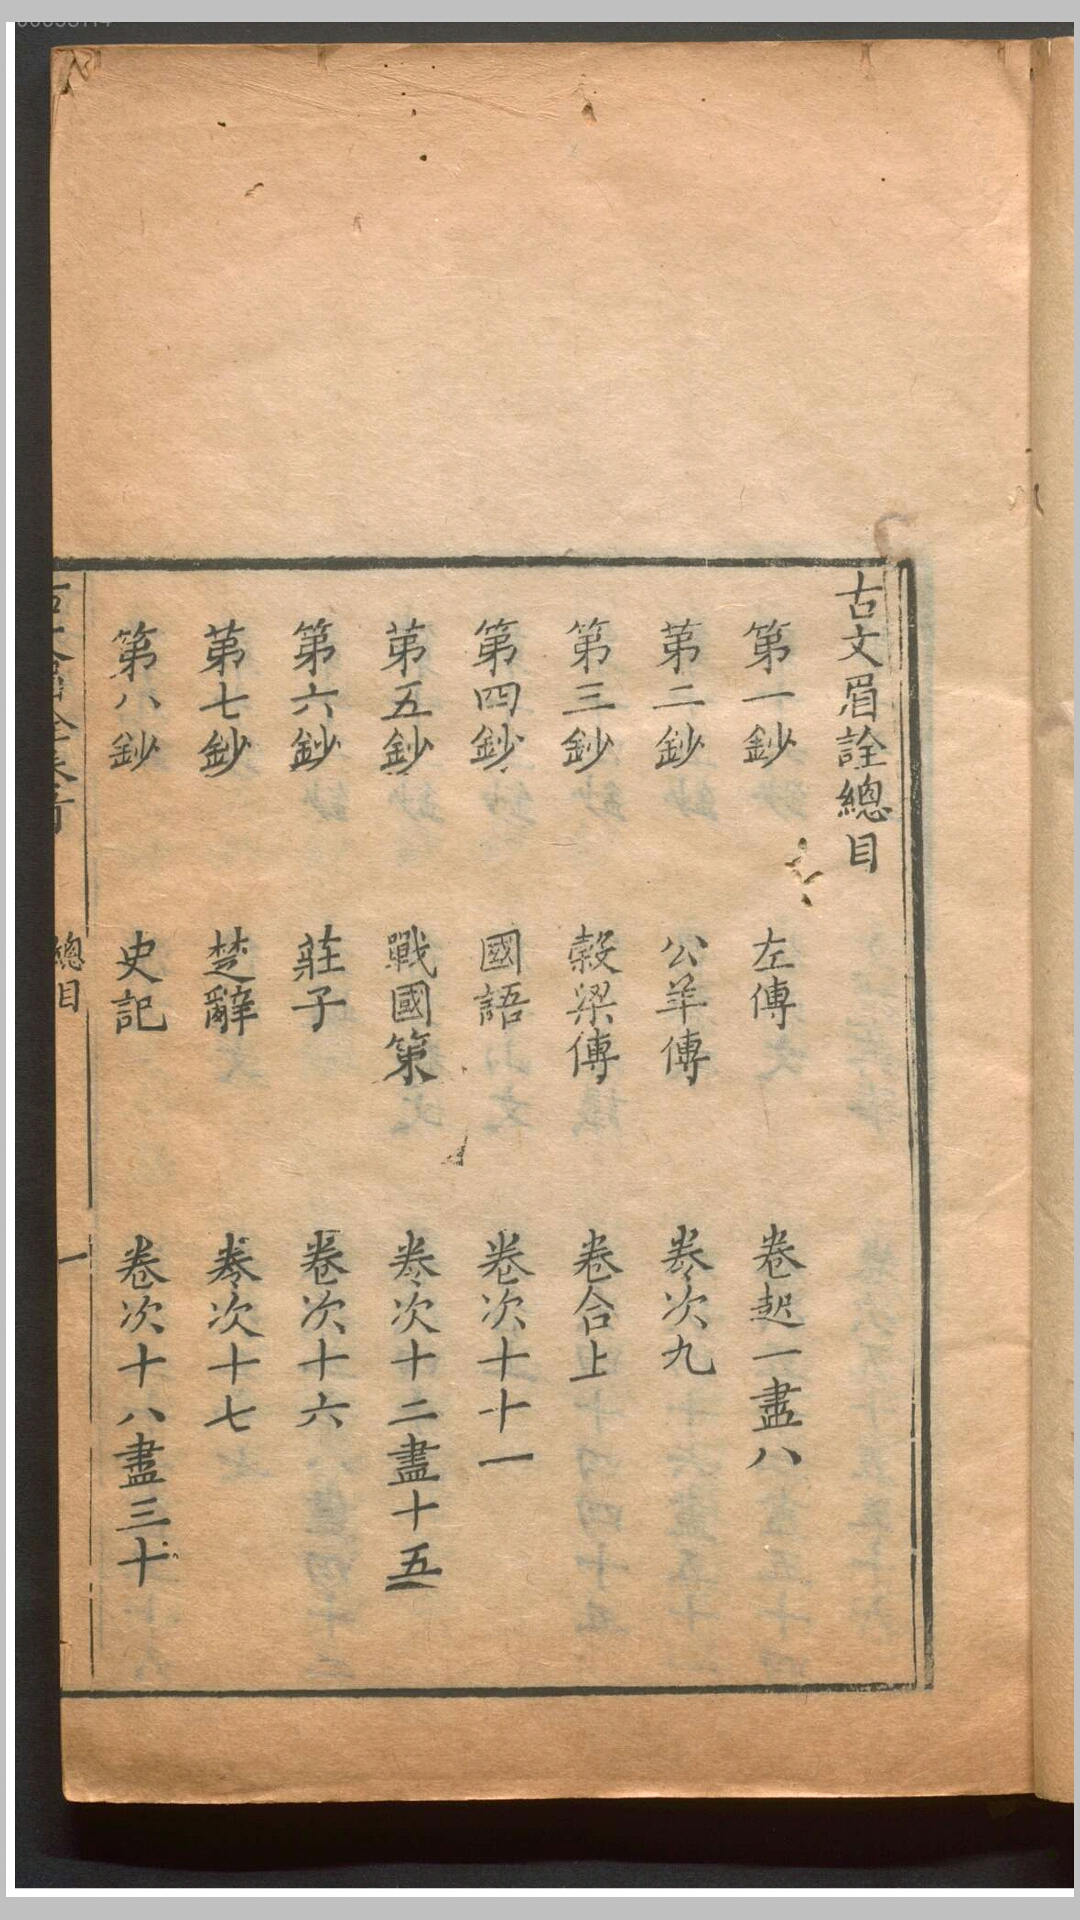 古文眉詮總目
第一鈔 左傳 卷起一盡八
第二鈔 公羊傳 卷次九
第三鈔 穀梁傳 卷合上
第四鈔 國語 卷次十十一
第五鈔 戰國策 卷次十二盡十五
第六鈔 莊子 卷次十六
第七鈔 楚辭 卷次十七
第八鈔 史記 卷次十八盡三十
總目 一